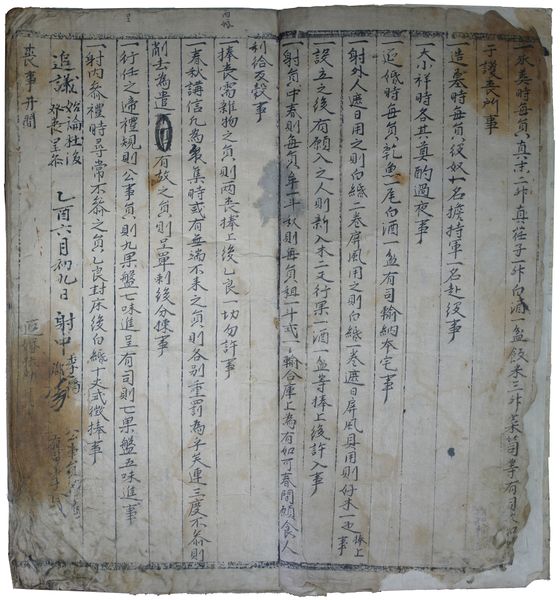 一永葬時每員真末二升真荏子一升白酒一盆飯米三升菜蔔等有司
于護喪所事
一造墓時每員役奴一名擔持軍一名赴役事
一大小祥時各其奠酌過夜事
一返魂時每員乾魚一尾白酒一盆有司輸納本宅事
一射外人遮日用之則白紙二卷屛風用之則白紙一卷遮日屛風具用則好木一疋捧上事
一設立之後有願入之人則新入木一疋行果一酒一盆等捧上後許入事
一射員中春則每員牟一斗秋則每員租一斗式輸合庫上爲有如可春間願食人
利給反穀事
一捧喪需雜物之員則兩喪捧上後乙良一切勿許事
一春秋講信凡爲聚集時或有無端不來之員則各別重罰爲乎矣連三度不參則
削去爲遣有故之員則呈單刺後分揀事
一行任之滯禮規則公事員則九果盤七味進呈有司則七果盤五味進事
一射內參禮時尋常不參之員乙良封庫後白紙十丈式徵捧事
追議
乙酉六月初九日射中
喪事井間